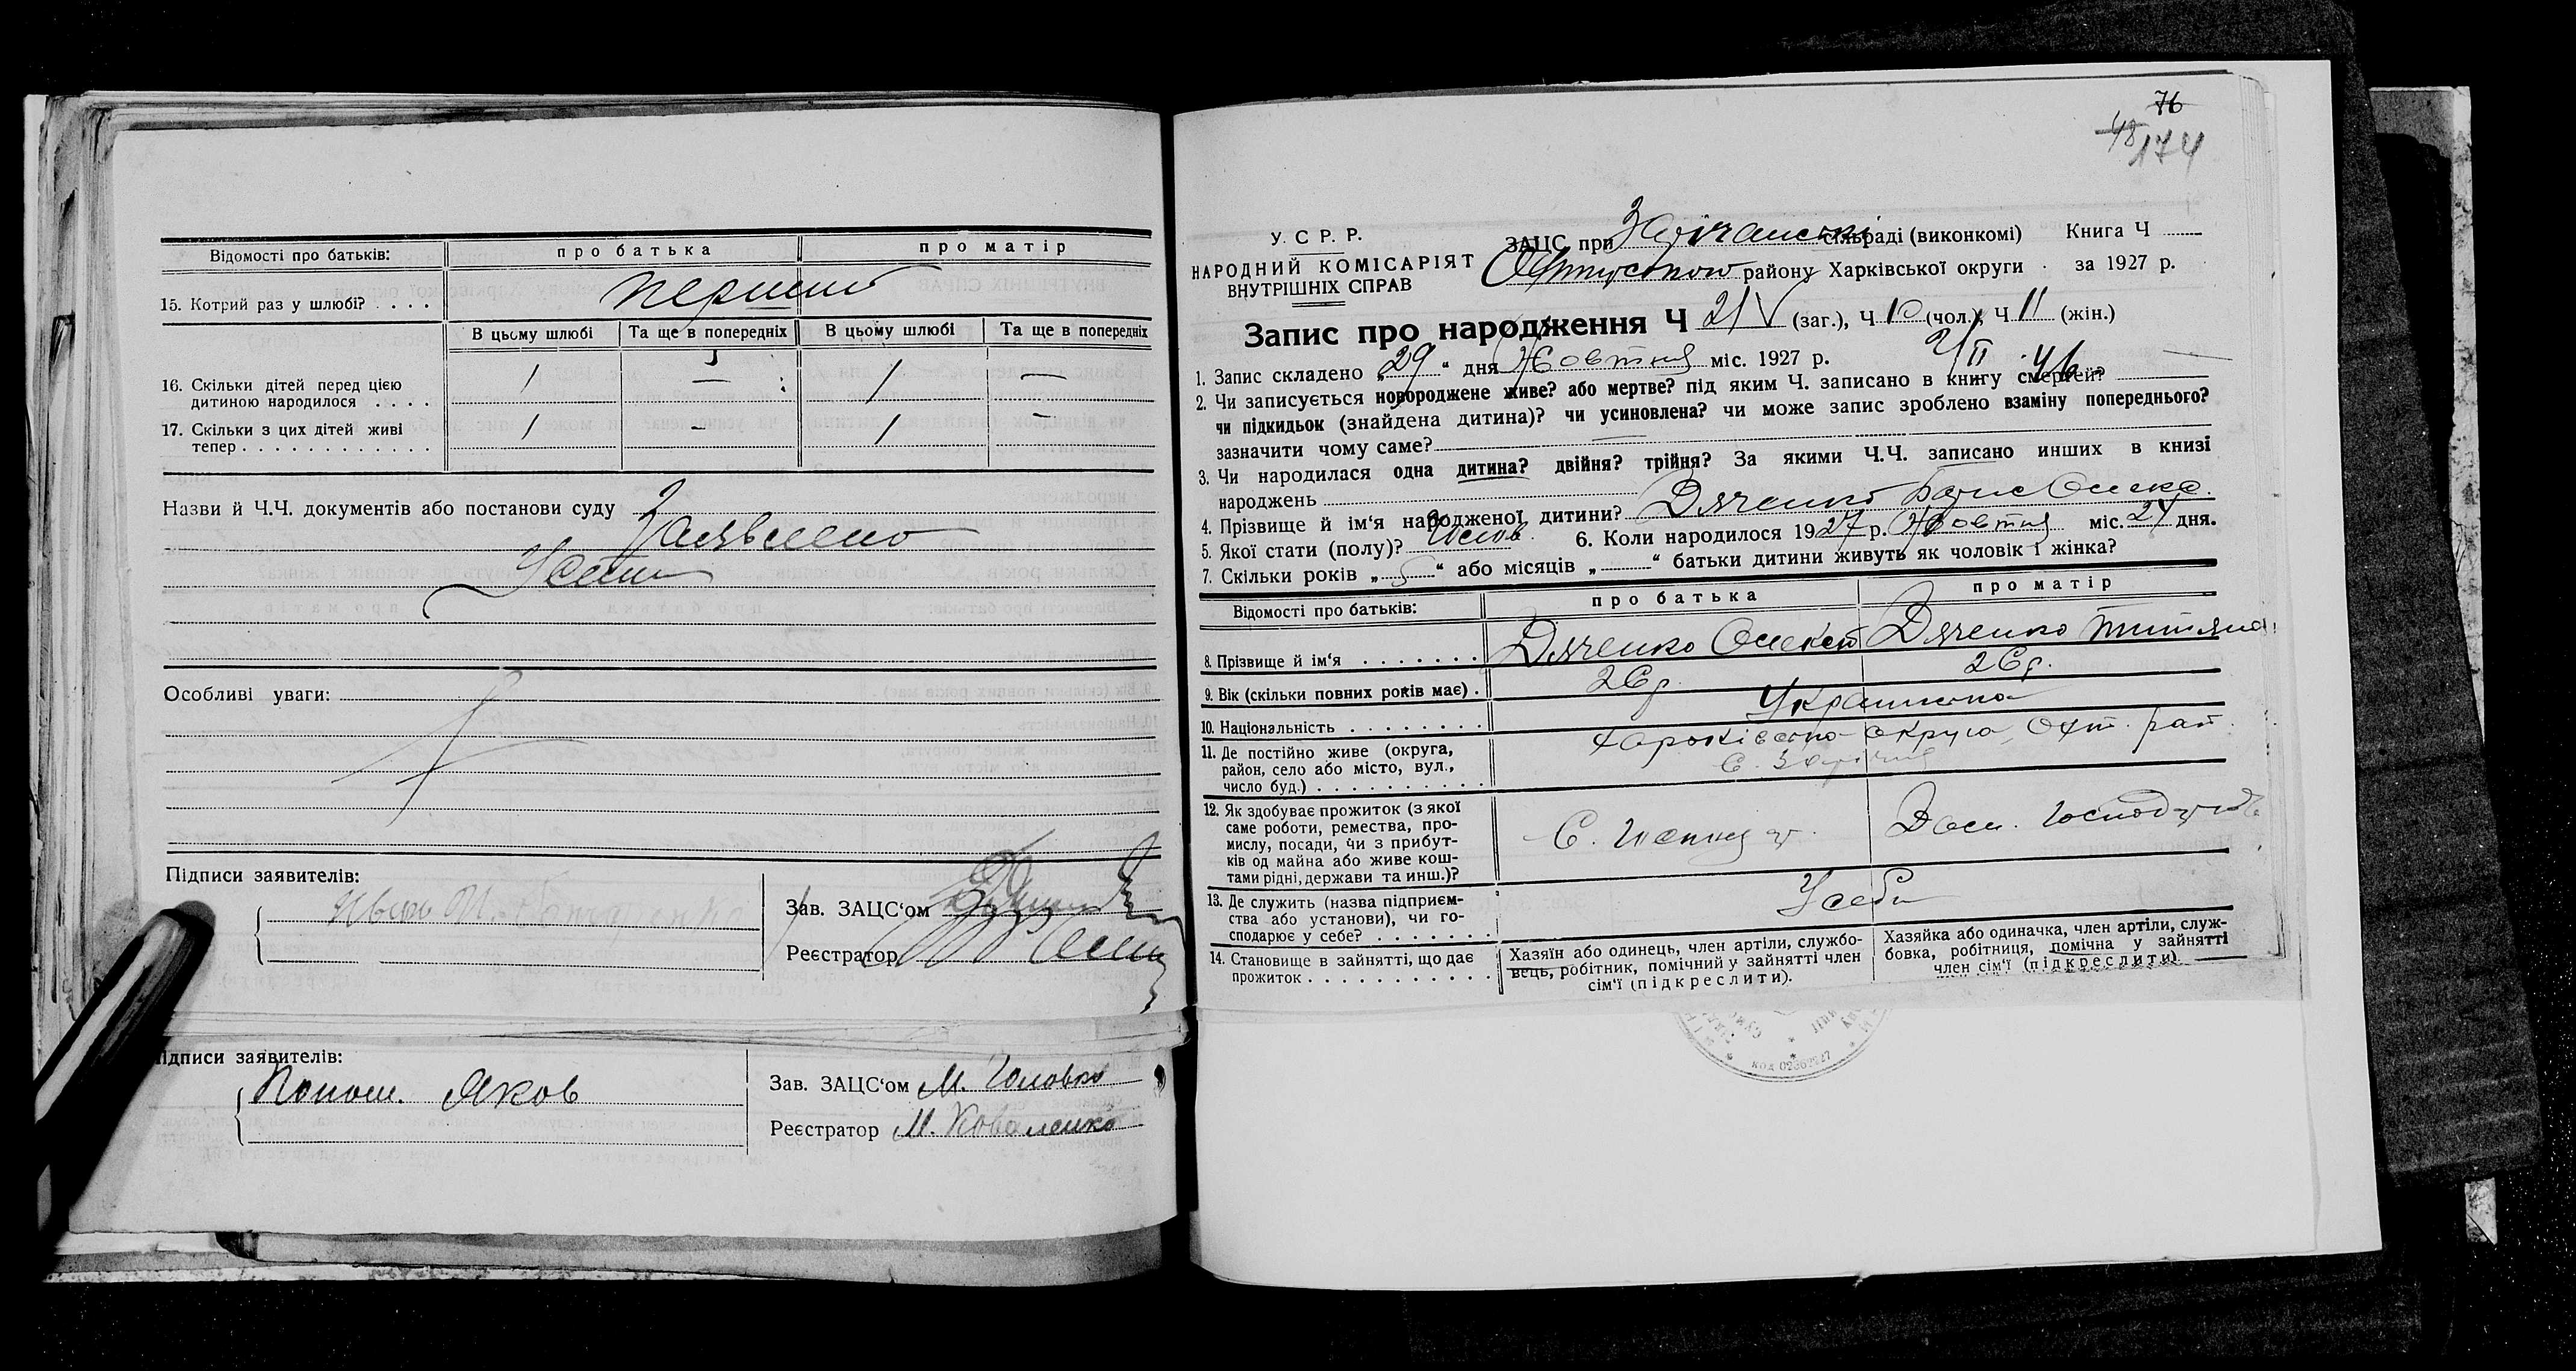 Відомості про батьків: про батька про матір
15. Котрий раз у шлюбі? . . . . перший
В цьому шлюбі Та ще в попередніх В цьому шлюбі Та ще в попередніх
16. Скільки дітей перед цією
дитиною народилося . . . . 1 — 1 —
17. Скільки з цих дітей живі
тепер . . . . . . . . . . . . 1 — 1 —
Назви й Ч.Ч. документів або постанови суду
Заявлено
Усно
Особливі уваги:
Підписи заявителів:
Зав. ЗАЦС‘ом
Реєстратор
ідписи заявителів:
Яков
Зав. ЗАЦС‘ом М. Головко
Реєстратор М. Коваленко
76
48
174
У. С Р. Р.
НАРОДНИЙ КОМІСАРІЯТ
ВНУТРІШНІХ СПРАВ
ЗАЦС при Зарічанські сільраді (виконкомі) Книга Ч
районy Харківської округи . за 1927 р.
Запис про народження Ч 21 (заг.), Ч 10 (чол.), Ч 11 (жін.)
1. Запис складено „29“ дня Жовтня міс. 1927 р.
2. Чи записується новороджене живе? або мертве? під яким Ч. записано в книгу смертей?
чи підкидьок (знайдена дитина)? чи усиновлена? чи може запис зроблено взаміну попереднього?
зазначити чому саме? —
3. Чи народилася одна дитина? двійня? трійня? За якими Ч.Ч. записано инших в книзі
народжень
4. Прізвище й ім‘я народженої дитини? Дяченко Борис Олекс.
5. Якої стати (полу)? Чолов. 6. Коли народилося 1927 р. Жовтня міс. 24 дня.
7. Скільки років „5“ або місяців „—“ батьки дитини живуть як чоловік і жінка?
Відомості про батьків: про батька про матір
8. Прізвище й ім‘я . . . . . . . Дяченко Олексій Дяченко Титяна
9. Вік (скільки повних років має) . 26 р. 26 р.
10. Національність . . . . . . . . Українська
11. Де постійно живе (округа,
район, село або місто, вул.,
число буд.) . . . . . . . . . . . Харківська округа, Охт. рай.
с. Зарічня
12. Як здобуває прожиток (з якої
саме роботи, ремества, про-
мислу, посади, чи з прибут-
ків од майна або живе кош-
тами рідні, держави та инш.)? Дом. господар.
13. Де служить (назва підприєм-
ства або установи), чи го-
сподарює у себе? . . . . . . . У себе
14. Становище в зайнятті, що дає
прожиток . . . . . . . . . . .
Хазяїн або одинець, член артіли, службо-
вець, робітник, помічний у зайнятті член
сім‘ї (підкреслити).
Хазяйка або одиначка, член артіли, служ-
бовка, робітниця, помічна у зайнятті
член сім‘ї (підкреслити).